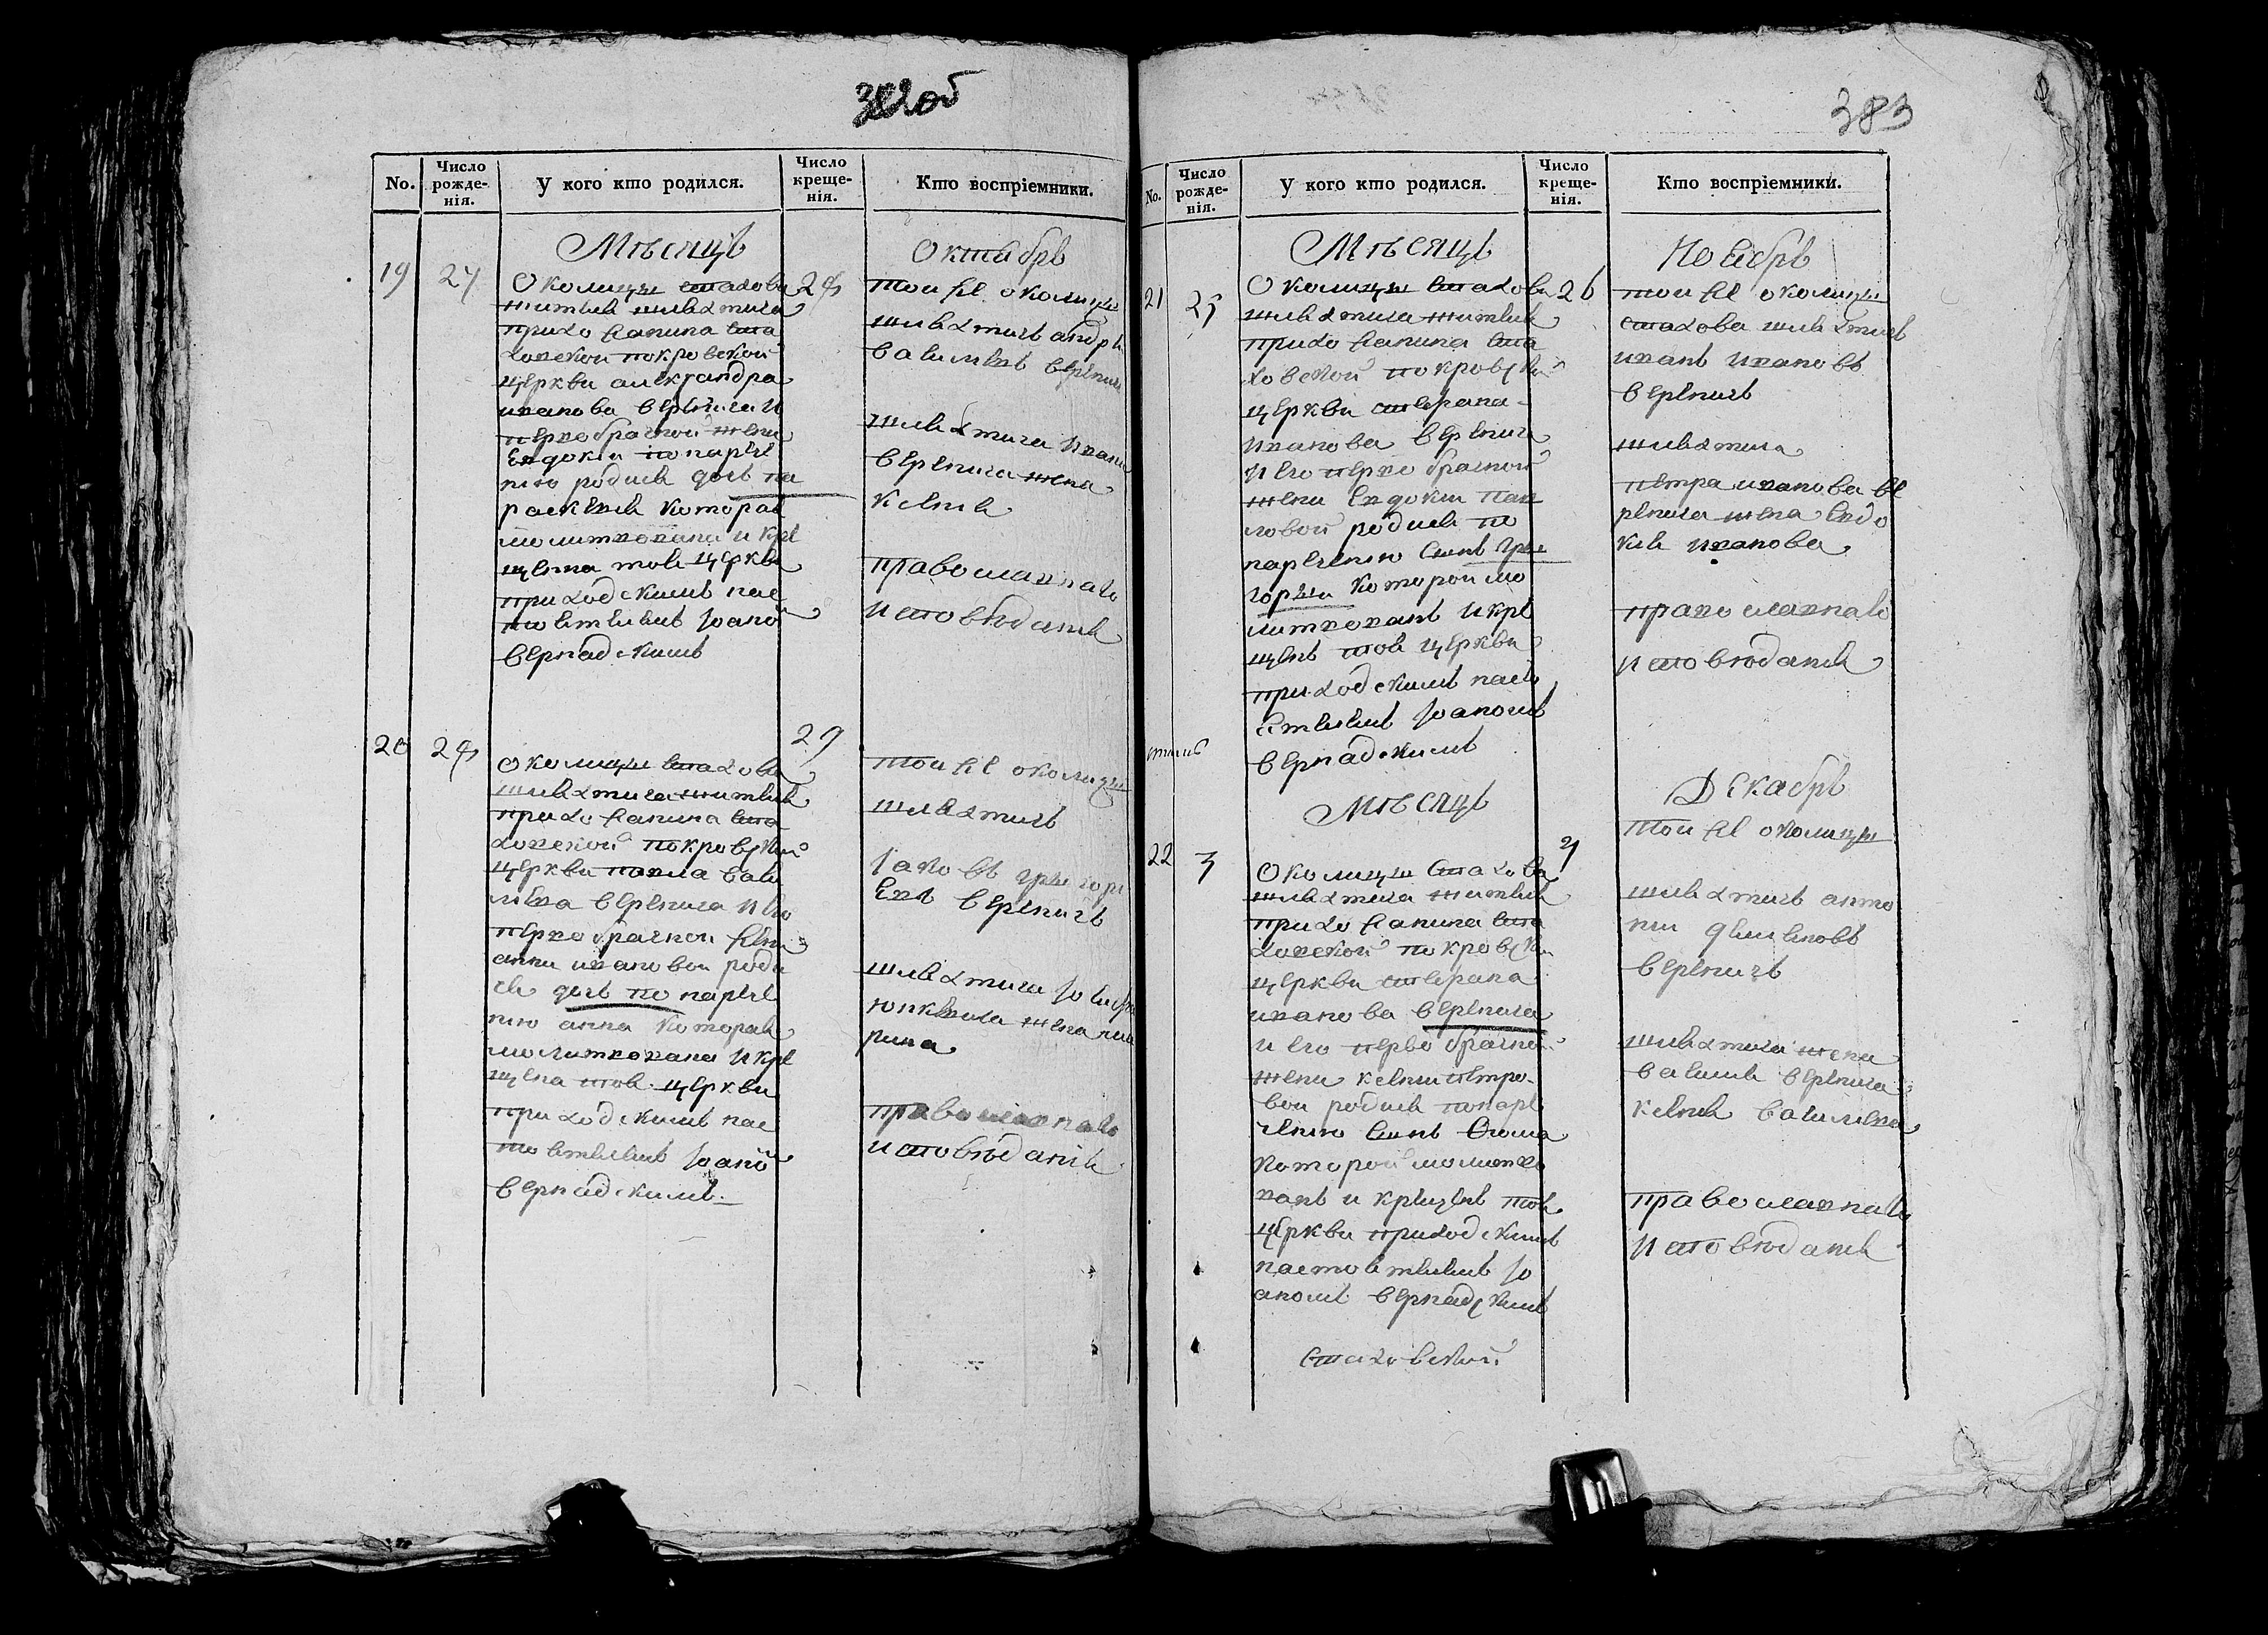 382об
No.
Число рожде-нія.
У кого кто родился.
Число креще-нія.
Кто воспріемники.
Мѣсяцъ
Октябрь
19
27
28
Околицы Стахова
жителя шляхтича
прихожанина Ста
ховской покровской
церкви александра
иванова веренича и
первобрачной жены
Евдокіи по нарѣче
нію родися дочь па
раскевія которая
молитвована и кре
щенна тоя церкви
приходскимъ нас
тоятелемъ Іоано
вернадскимъ
той же околицы
шляхтичъ андрѣ
василевъ веренич
шляхтича ивана
веренича жена
ксенія
православнаго
исповѣданія
20
28
29
околицы Стахова
шляхтича жителя
прихожанина Ста
ховской покровской
церкви павла васи
лѣва веренича и его
первобрачной жены
анны ивановой роди
ся дочь по нарече
нію анна которая
молитвована и кре
щена тоя церкви
приходскимъ нас
тоятелемъ Іоано
вернадскимъ.
той же околицы
шляхтичъ
Іаковъ григорі
евъ вереничъ
шляхтича
жена
рина
православнаго
исповѣданія
383
No.
Число рожде-нія.
У кого кто родился.
Число креще-нія.
Кто воспріемники.
Мѣсяцъ
Ноябрь
21
25
26
Околицы Стахова
шляхтича жителя
прихожанина Ста
ховской покровской
церкви стефана
иванова веренича
и его первобрачной
жены Евдокіи пав
ловой родися по
наречению Сынъ гри
горій которой мо
литвованъ и кре
щенъ тоя церкви
приходскимъ нас
ятелемъ Іоаномъ
вернадскимъ
той же околицы
стахова шляхтичъ
иванъ ивановъ
вереничъ
шляхтича
петра иванова ве
ренича жена Евдо
кія иванова
православнаго
исповѣданія
Мѣсяцъ
Декабрь
22
3
Околицы Стахова
шляхтича жителя
прихожанина Ста
ховской покровской
церкви стефана
иванова веренича
и его первобрачной
жены ксении петро
вой родися по наре
ченію Сынъ Фома
которой молитво
ванъ и крещенъ тоя
церкви приходскимъ
настоятелемъ Іо
аномъ вернадскимъ
той же околицы
шляхтичъ анто
ній
вереничъ
шляхтича жена
василія веренича
ксенія василевна
православнаго
исповѣданія
Стаховской